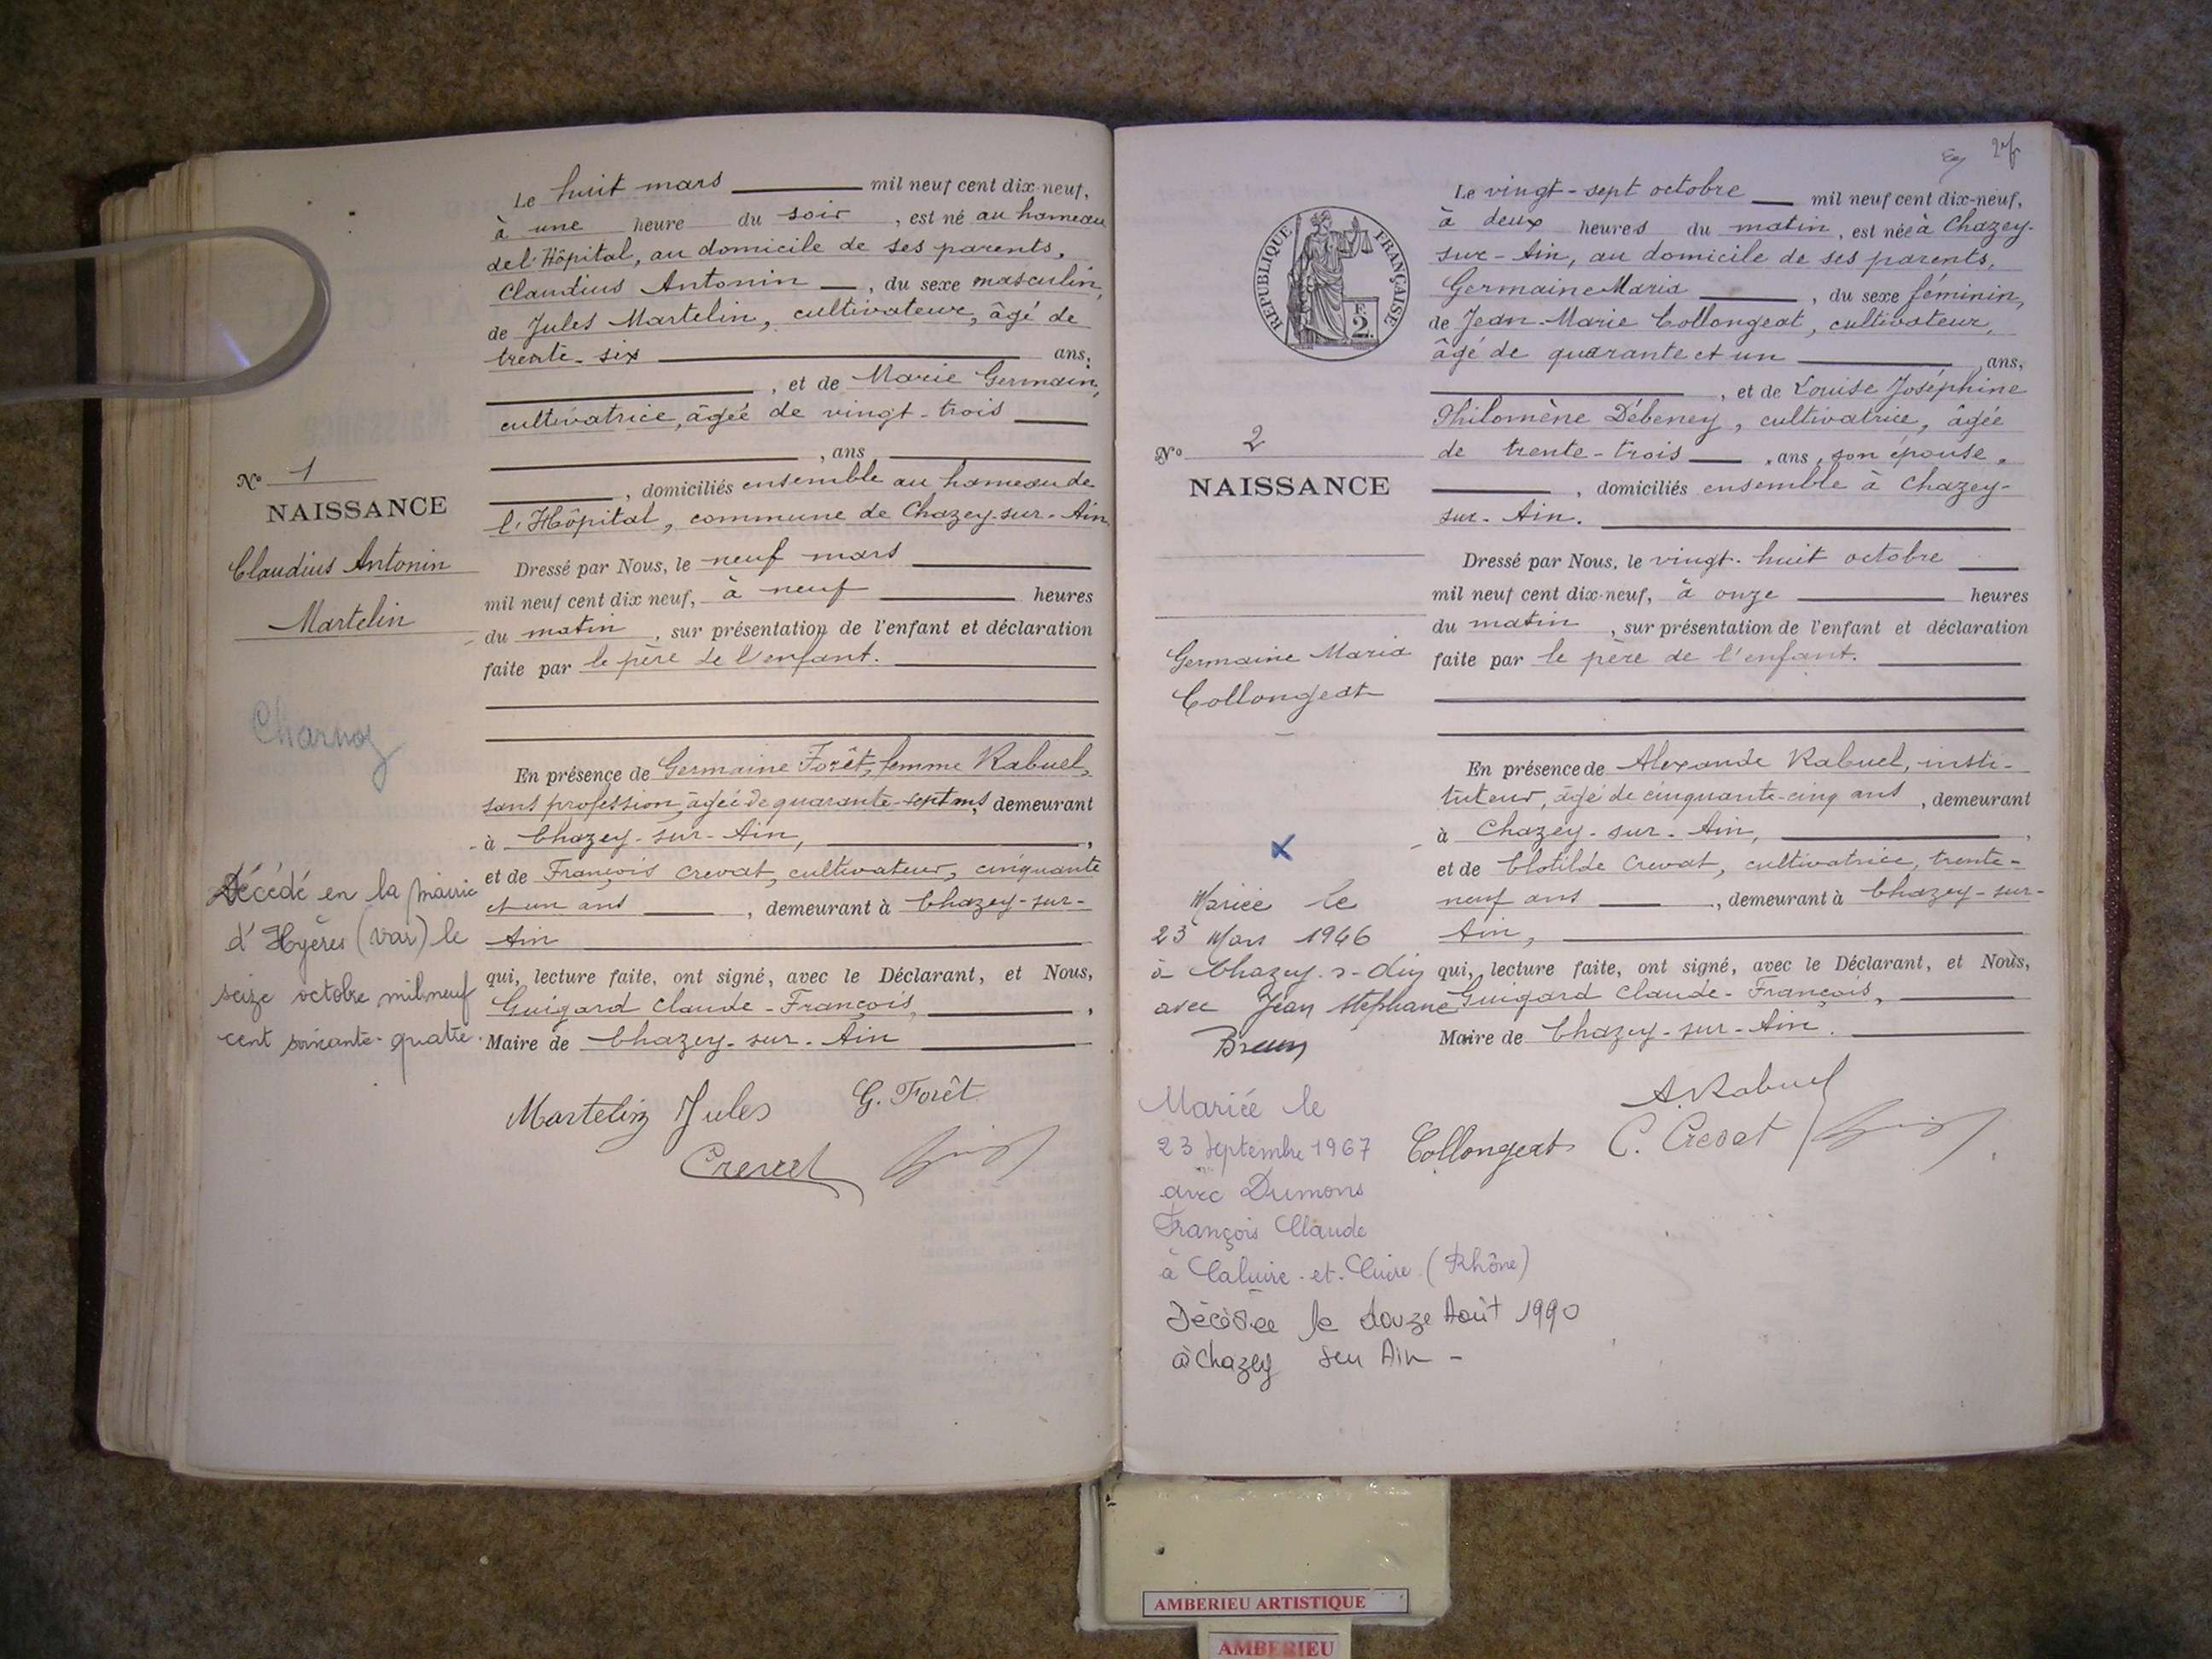 Le huit mars mil neuf cent dix-neuf,
à une heure du soir, est né au hameau
del'Hôpital, au domicile de ses parents,
Claudius Antonin, du sexe masculin,
de Jules Martelin, cultivateur, âgé de
trente-six ans,
, et de Marie Germain,
cultivatrice, âgée de vingt-trois
, ans
, domiciliés ensemble au hameau de
l'Hôpital, commune de Chazey-sur-Ain
Nº 1
NAISSANCE
Claudius Antonin
Martelin
Charnoz
Décédé en la mairie
d'Hyères (Var) le
seize octobre mil neuf
cent soixante-quatre.
Dressé par Nous, le neuf mars
mil neuf cent dix neuf, à neuf heures
du matin, sur présentation de l'enfant et déclaration
faite par le père de l'enfant.
En présence de Germaine Forêt, femme Rabuel,
sans profession, âgée de quarante-sept ans, demeurant
à Chazey-sur-Ain,
et de François Crevat, cultivateur, cinquante
et un ans, demeurant à Chazey-sur-
Ain
qui, lecture faite, ont signé, avec le Déclarant, et Nous,
Guigard Claude-François,
Maire de Chazey-sur-Ain
Martelin Jules G. Forêt
Crevat
RÉPUBLIQUE FRANÇAISE
F.
2.
Le vingt-sept octobre mil neuf cent dix-neuf,
à deux heures du matin, est née à Chazey-
sur-Ain, au domicile de ses parents,
Germaine Maria, du sexe féminin,
de Jean-Marie Collongeat, cultivateur,
âgé de quarante et un ans,
, et de Louise Joséphine
Philomène Débeney, cultivatrice, âgée
de trente-trois, ans, son épouse,
, domiciliés ensemble à Chazey-
sur-Ain.
Nº 2
NAISSANCE
Germaine Maria
Collongeat
Mariée le
23 Mars 1946
à Chazey-s-Ain
avec Jean Stéphane
Mariée le
23 septembre 1967
avec Dumons
François Claude
à Caluire-et-Cuire (Rhône)
Décédée le douze Août 1990
à Chazey sur Ain -
Dressé par Nous, le vingt-huit octobre
mil neuf cent dix-neuf, à onze heures
du matin, sur présentation de l'enfant et déclaration
faite par le père de l'enfant.
En présence de Alexandre Rabuel, insti-
tuteur, âgé de cinquante-cinq ans, demeurant
à Chazey-sur-Ain,
et de Clotilde Crevat, cultivatrice, trente-
neuf ans, demeurant à Chazey-sur-
Ain,
qui, lecture faite, ont signé, avec le Déclarant, et Nous,
Guigard Claude-François,
Maire de Chazey-sur-Ain.
A. Rabuel
Collongeat C. Crevat
AMBERIEU ARTISTIQUE
AMBERIEU